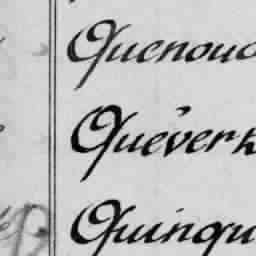 Quenouc
Quéverk
Quinqu